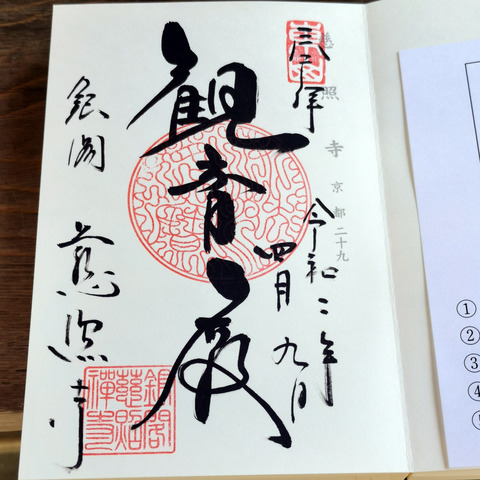 奉拝
慈照寺 京都二十九
令和二年
四月九日
観音殿
銀閣 慈照寺
銀閣慈照禅寺
①
②
③
④